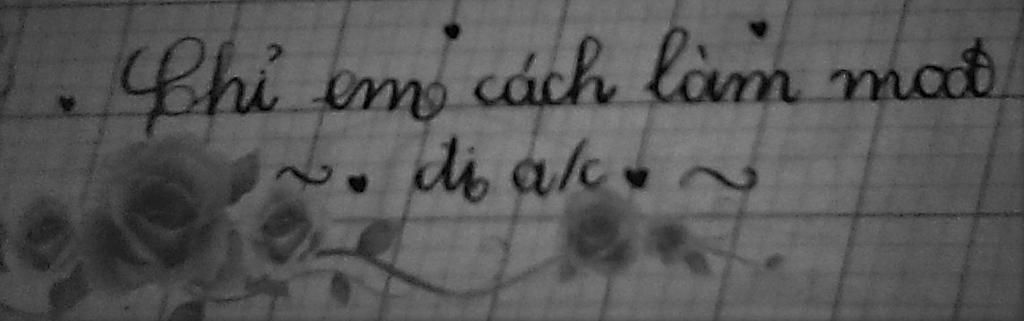 . Chỉ em cách làm mođt
~ . đi a/c . ~